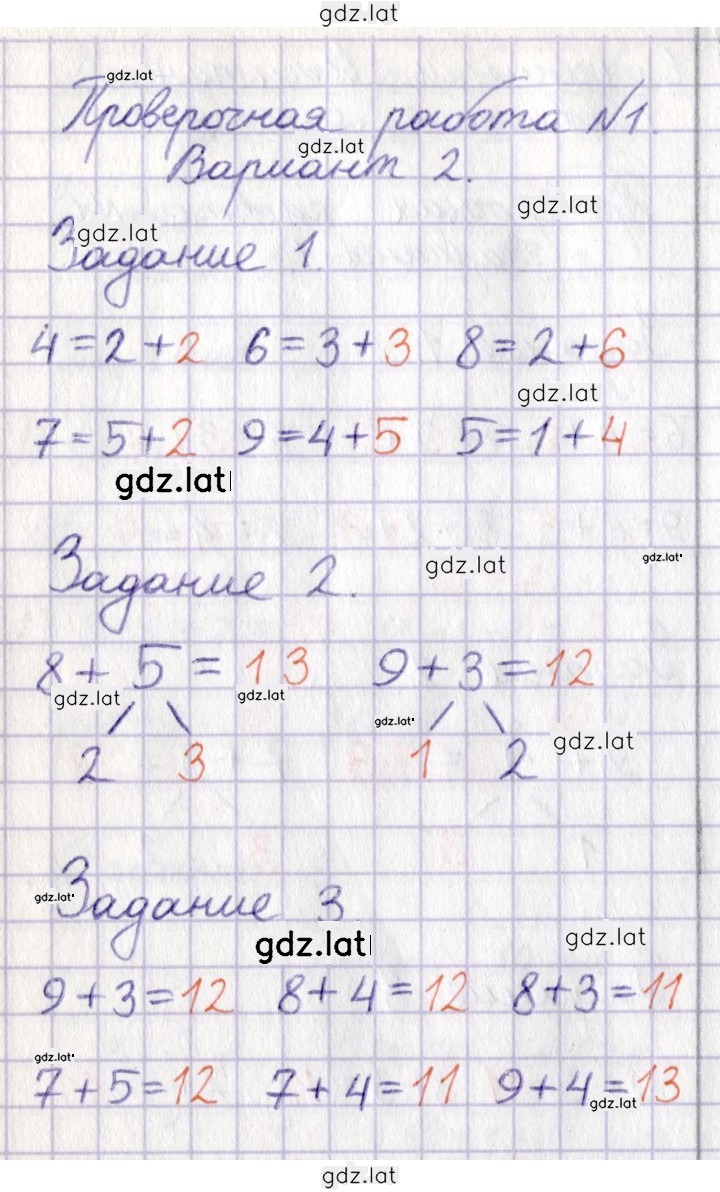 gdz.lat
gdz.lat
Проверочная работа №1.
gdz.lat
Вариант 2.
gdz.lat
gdz.lat
Задание 1.
4=2+2 6=3+3 8=2+6
gdz.lat
7=5+2 9=4+5 5=1+4
gdz.lat
gdz.lat gdz.lat
Задание 2.
8+5=13 9+3=12
gdz.lat gdz.lat
gdz.lat gdz.lat
2 3 1 2
gdz.lat
Задание 3
gdz.lat gdz.lat
9+3=12 8+4=12 8+3=11
gdz.lat
7+5=12 7+4=11 9+4=13
gdz.lat
gdz.lat